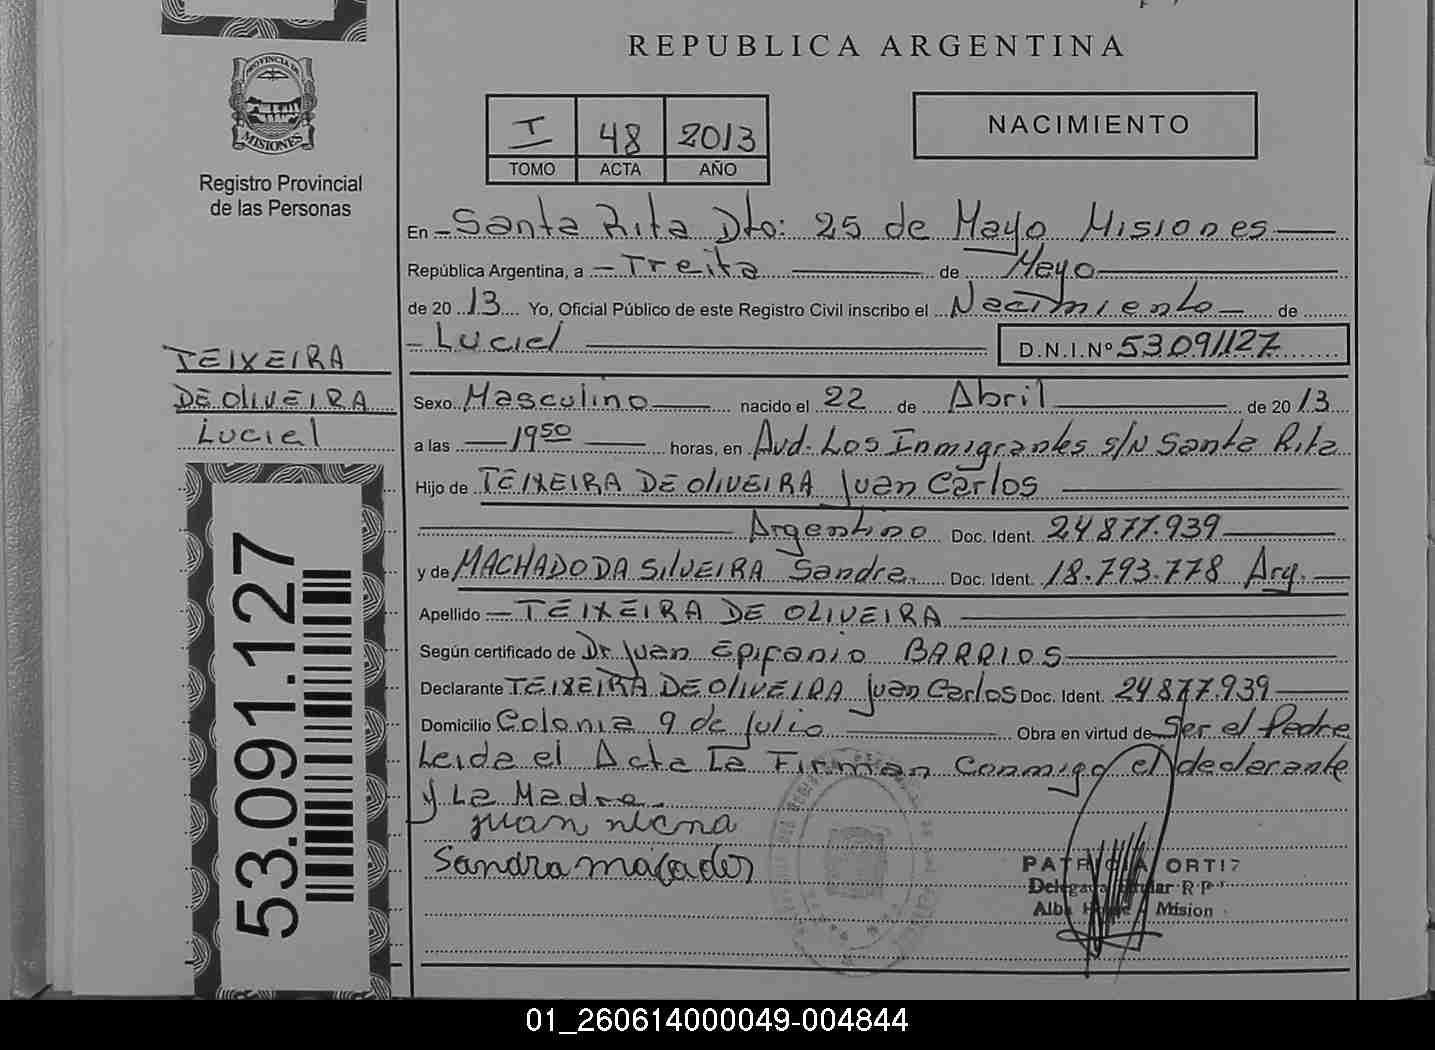 REPUBLICA ARGENTINA
PROVINCIA DE
MISIONES
Registro Provincial
de las Personas
I 48 2013
TOMO ACTA AÑO
NACIMIENTO
En Santa Rita Dto: 25 de Mayo Misiones
República Argentina, a Treita de Mayo
de 2013 Yo, Oficial Público de este Registro Civil inscribo el Nacimiento de
Luciel D.N.I.Nº 53.091127
TEIXEIRA
DE OLIVEIRA
Luciel
Sexo Masculino nacido el 22 de Abril de 2013
a las 19 50 horas, en Avd. Los Inmigrantes s/N Santa Rita
Hijo de TEIXEIRA DE OLIVEIRA Juan Carlos
Argentino Doc. Ident. 24.877.939
y de MACHADO DA SILVEIRA Sandra. Doc. Ident. 18.793.778 Arg.
Apellido TEIXEIRA DE OLIVEIRA
Según certificado de Dr. Juan Epifanio BARRIOS
Declarante TEIXEIRA DE OLIVEIRA Juan Carlos Doc. Ident. 24877.939
Domicilio Colonia 9 de Julio Obra en virtud de Ser el Padre
Leida el Acta La Firman Conmigo el declarante
y La Madre.
juan
Sandra
PATRICIA ORTIZ
Delegada Titular R P
Alba Misión
53.091.127
01_260614000049-004844